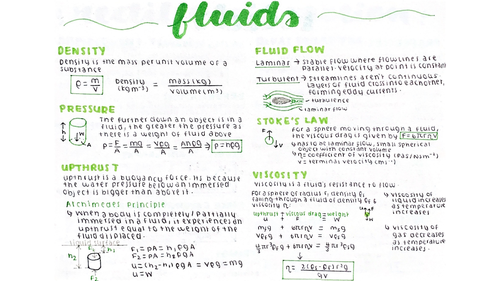 fluids
DENSITY
Density is the mass per unit volume of a
substance
ρ = m/V
Density (kgm⁻³) = mass(kg)/volume(m³)
PRESSURE
The further down an object is in a
fluid, the greater the pressure as
there is a weight of fluid above
h
A
P = F/A = mg/A = Vρg/A = Ahρg/A → P = hρg
UPTHRUST
upthrust is a buoyancy force. Its because
the water pressure below an immersed
object is bigger than above it.
Archimedes Principle
↳ When a body is completely/partially
immersed in a fluid, it experiences an
upthrust equal to the weight of the
fluid displaced.
liquid surface
F₁
h₁
h₂
F₂
F₁ = PA = h₁ρgA
F₂ = PA = h₂ρgA
u = (h₂-h₁)ρgA = Vρg = mg
u = W
FLUID FLOW
Laminar → stable flow where flowlines are
parallel. velocity at point is constant
Turbulent → Streamlines aren't continuous
Layers of fluid cross into eachother,
forming eddy currents.
turbulence
laminar flow
STOKE'S LAW
For a sphere moving through a fluid,
the viscous drag is given by F = 6πηrv
↳ has to be laminar flow, small spherical
object with constant volume
η = coefficient of viscosity
v = terminal velocity (ms⁻¹)
VISCOSITY
viscosity is a fluids resistance to flow
For a sphere of radius r, density ρs
falling through a fluid of density ρf &
viscosity η:
upthrust + viscous drag = weight
mfg + 6πηrv = msg
Vρfg + 6πηrv = Vρsg
4/3πr³ρfg + 6πηrv = 4/3πr³ρsg
η = 2(ρs-ρf)r²g/9v
↳ viscosity of
liquid increases
as temperature
increases
↳ viscosity of
gas decreases
as temperature
increases.